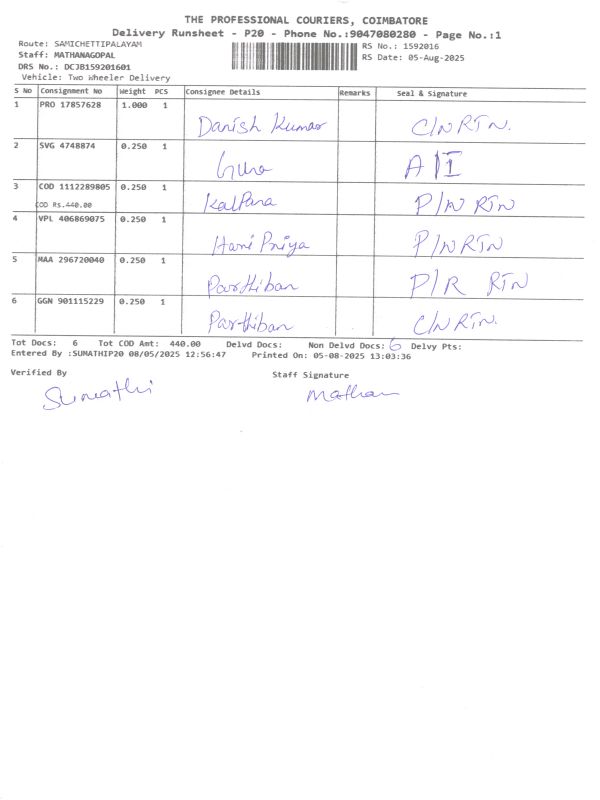 THE PROFESSIONAL COURIERS, COIMBATORE
Delivery Runsheet - P20 - Phone No.:9047080280 - Page No.:1
Route: SAMICHETTIPALAYAM
Staff: MATHANAGOPAL
DRS No.: DCJB159201601
Vehicle: Two Wheeler Delivery
RS No.: 1592016
RS Date: 05-Aug-2025
S No Consignment No Weight PCS Consignee Details Remarks Seal & Signature
1 PRO 17857628 1.000 1
Danish Kumar C/N RTN.
2 SVG 4748874 0.250 1
Guna A/I
3 COD 1112289805 0.250 1
COD Rs.440.00 Kalpana P/N RTN
4 VPL 406869075 0.250 1
Hani Priya P/N RTN
5 MAA 296720040 0.250 1
Parthiban P/R RTN
6 GGN 901115229 0.250 1
Parthiban C/N RTN.
Tot Docs: 6 Tot COD Amt: 440.00 Delvd Docs: Non Delvd Docs: 6 Delvy Pts:
Entered By :SUMATHIP20 08/05/2025 12:56:47 Printed On: 05-08-2025 13:03:36
Verified By Staff Signature
Sumathi Mathan